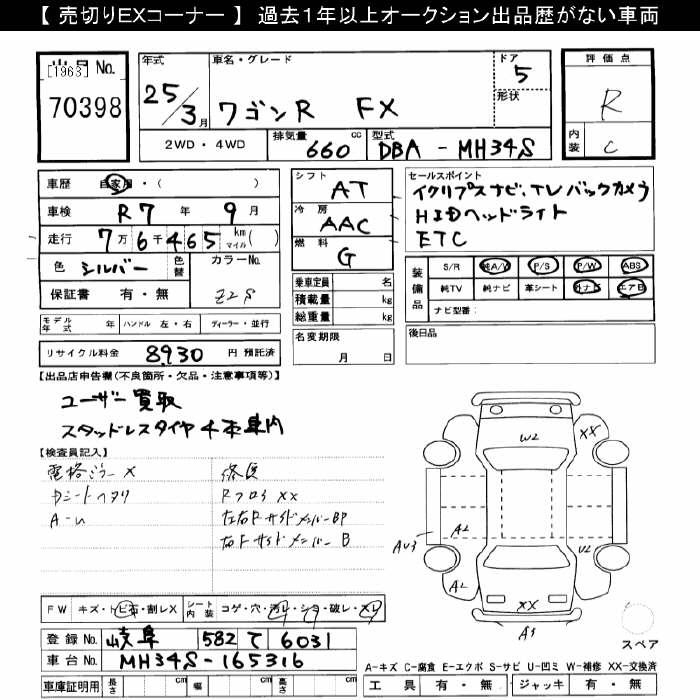 【 売切りEXコーナー 】 過去１年以上オークション出品歴がない車両
[1963] No.
70398
年式
25/3月
車名・グレード
ワゴンR FX
ドア
5
形状
評価点
R
内装
C
2WD・4WD
排気量
660 cc
型式
DBA - MH34S
車歴
自家用・( )
車検
R7 年 9 月
走行
7万6千465 km マイル( )
色
シルバー
色替
カラーNo.
Z2S
保証書 有・無
シフト
AT
冷房
AAC
燃料
G
セールスポイント
イクリプスナビ、TV、バックカメラ
HIDヘッドライト
ETC
装備品
S/R 純A/W P/S P/W ABS
純TV 純ナビ 革シート 外ナビ エアB
ナビ型番:
乗車定員 名
積載量 kg
総重量 kg
名変期限
月 日
後日品
モデル年式 年 ハンドル 左・右 ディーラー・並行
リサイクル料金 8930 円 預託済
【出品店申告欄(不良箇所・欠品・注意事項等)】
ユーザー買取
スタッドレスタイヤ4本車内
【検査員記入】
電格ミラー X
Dシートヘタリ
A-U
修復
Rフロア XX
左右Fサイドメンバー BP
右Fサイドメンバー B
W2
XX
A2
AU3
A2
XX
A3
スペア
FW キズ・トビ石・割レX
シート内装 コゲ・穴・汚レ・シミ・破レ・スレ
登録No. 岐阜 582 て 6031
車台No. MH34S-165316
車庫証明用 長さ cm 幅 cm 高さ cm
A-キズ C-腐食 E-エクボ S-サビ U-凹ミ W-補修 XX-交換済
工具 有・無 ジャッキ 有・無